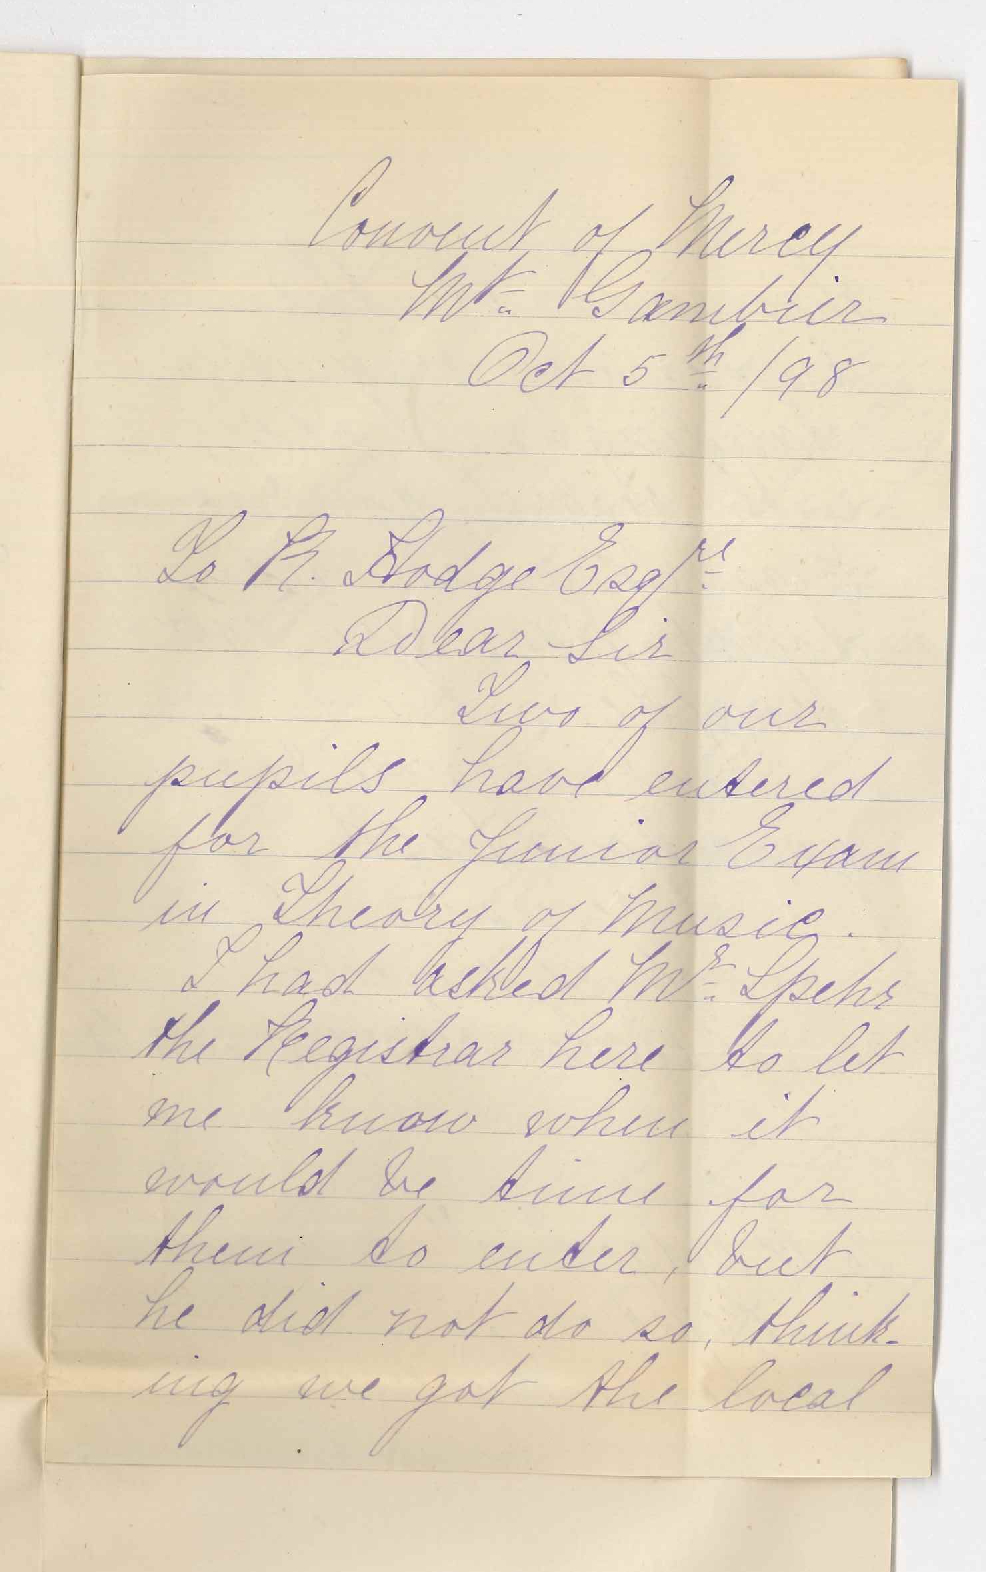 Convent of Mercy
Mt. Gambier
Oct 5th /98
To R. Hodge Esqre
Dear Sir
Two of our
pupils have entered
for the Junior Exam
in Theory of Music.
I had asked Mr. Spehr
the Registrar here to let
me know when it
would be time for
them to enter, but
he did not do so, think-
ing we got the local